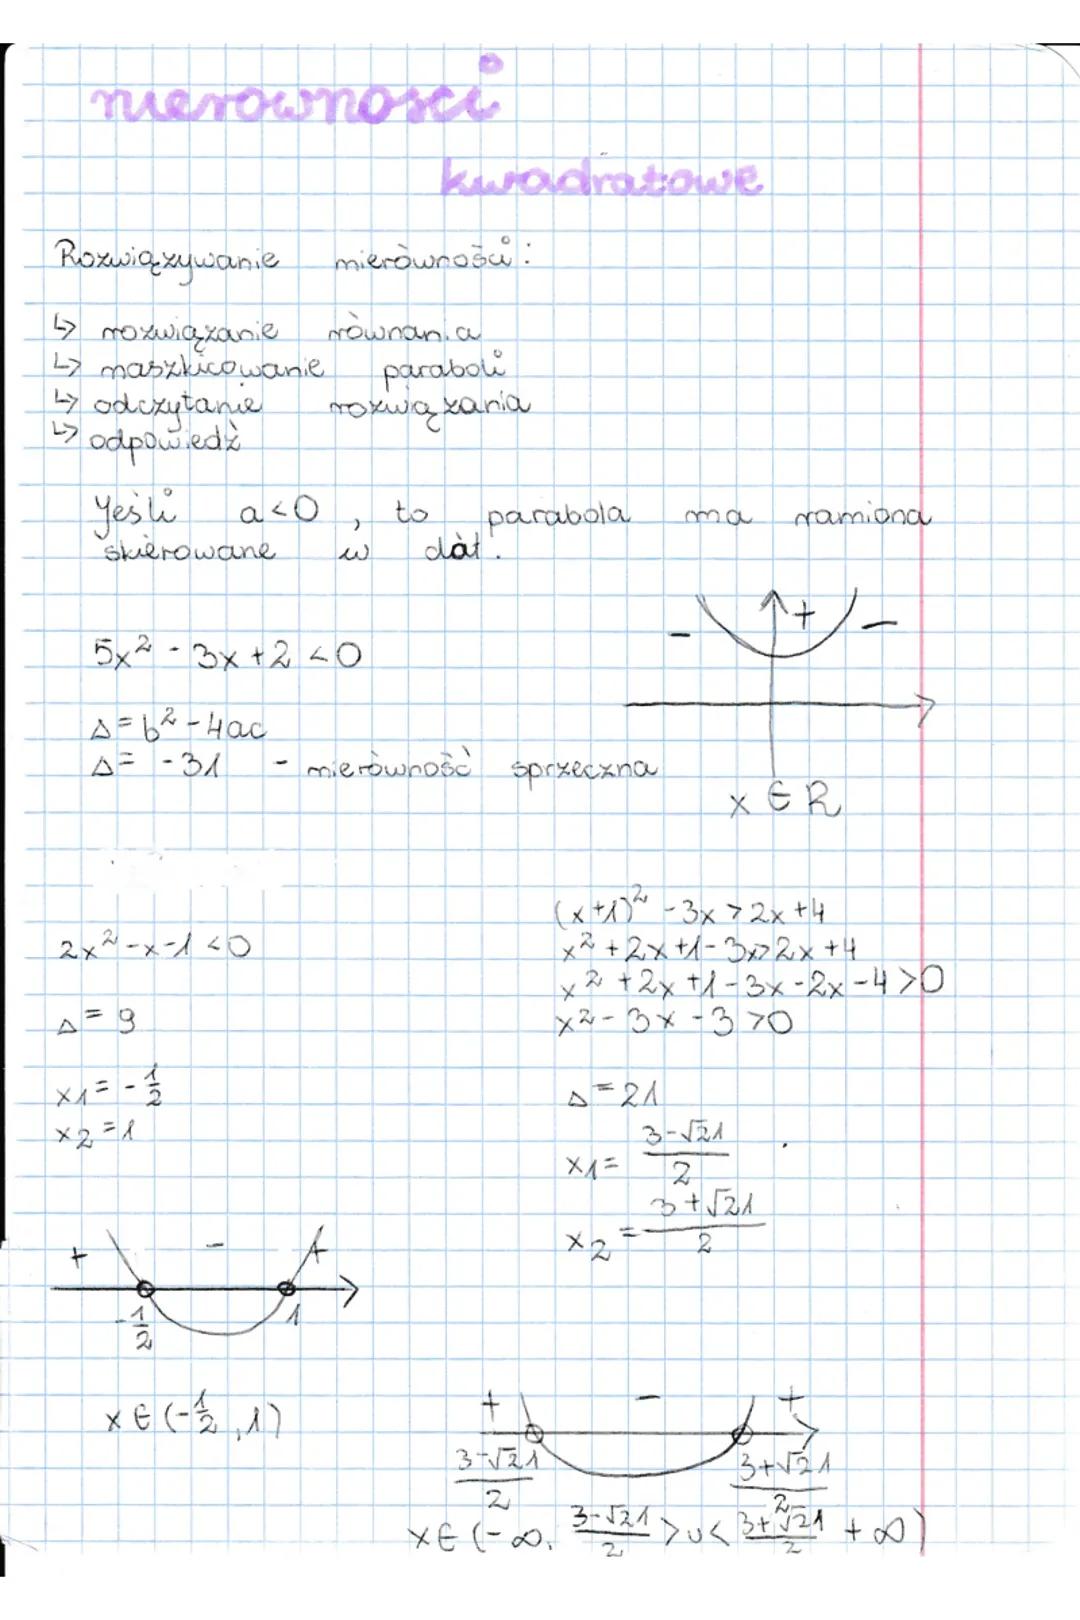 nierówności
kwadratowe
Rozwiązywanie nierówności:
↳ rozwiązanie równania
↳ naszkicowanie paraboli
↳ odczytanie rozwiązania
↳ odpowiedź
Jeśli a<0, to parabola ma ramiona
skierowane w dół.
- + -
5x² - 3x + 2 < 0
Δ = b² - 4ac
Δ = -31 - nierówność sprzeczna
x ∈ R
2x² - x - 1 < 0
Δ = 9
x1 = -1/2
x2 = 1
+ - +
-1/2 1
x ∈ (-1/2, 1)
(x+1)² - 3x > 2x + 4
x² + 2x + 1 - 3x > 2x + 4
x² + 2x + 1 - 3x - 2x - 4 > 0
x² - 3x - 3 > 0
Δ = 21
x1 = (3-√21)/2
x2 = (3+√21)/2
+ - +
(3-√21)/2 (3+√21)/2
x ∈ (-∞, (3-√21)/2 > ∪ < (3+√21)/2 + ∞)